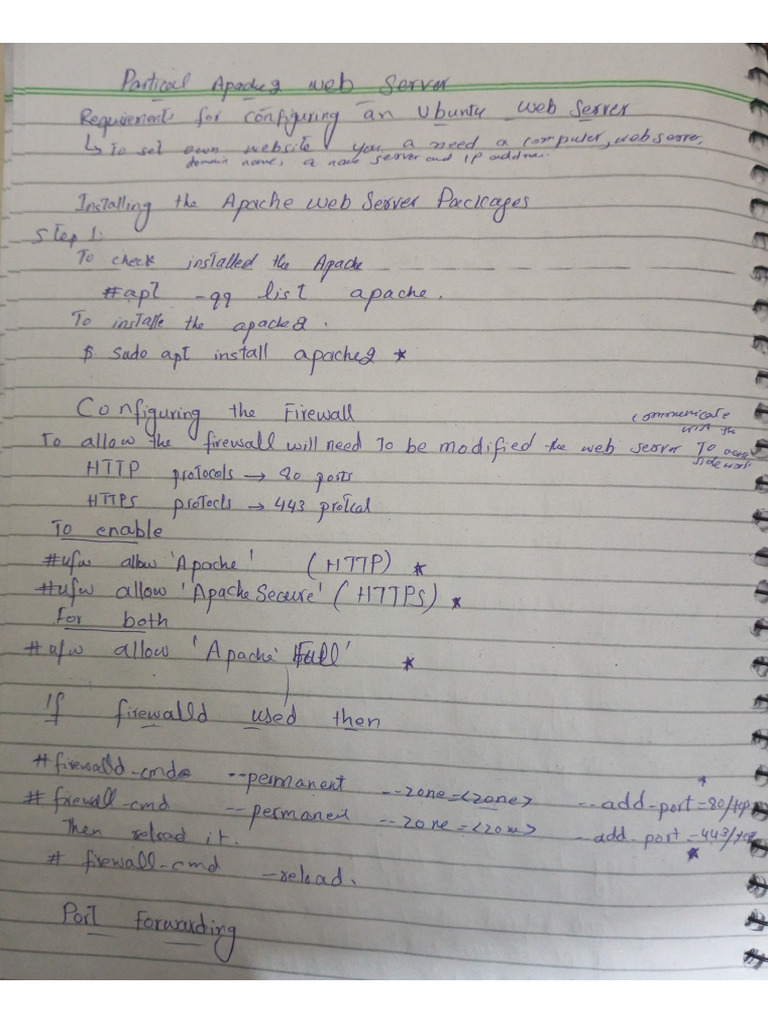 Partical Apache2 web Server
Requirements for configuring an Ubuntu web Server
↳ To set own website you a need a computer, web server,
domain name, a name server and IP address
Installing the Apache web Server Packages
Step 1:
To check installed the Apache
#apt -qq list apache.
To installe the apache2.
$ sudo apt install apache2 *
Configuring the Firewall
To allow the firewall will need To be modified the web server To
communicate
with the
side work
HTTP protocols → 80 ports
HTTPS protocls → 443 protcal
To enable
#ufw allow 'Apache' (HTTP) *
#ufw allow 'Apache Secure' (HTTPS) *
For both
#ufw allow 'Apache Full' *
If firewalld used then
#firewalld-cmd --permanent --zone=<zone> --add-port=80/tcp *
# firewall-cmd --permanent --zone=<zone> --add-port=443/tcp *
Then reload it.
# firewall-cmd -reload.
Port Forwarding